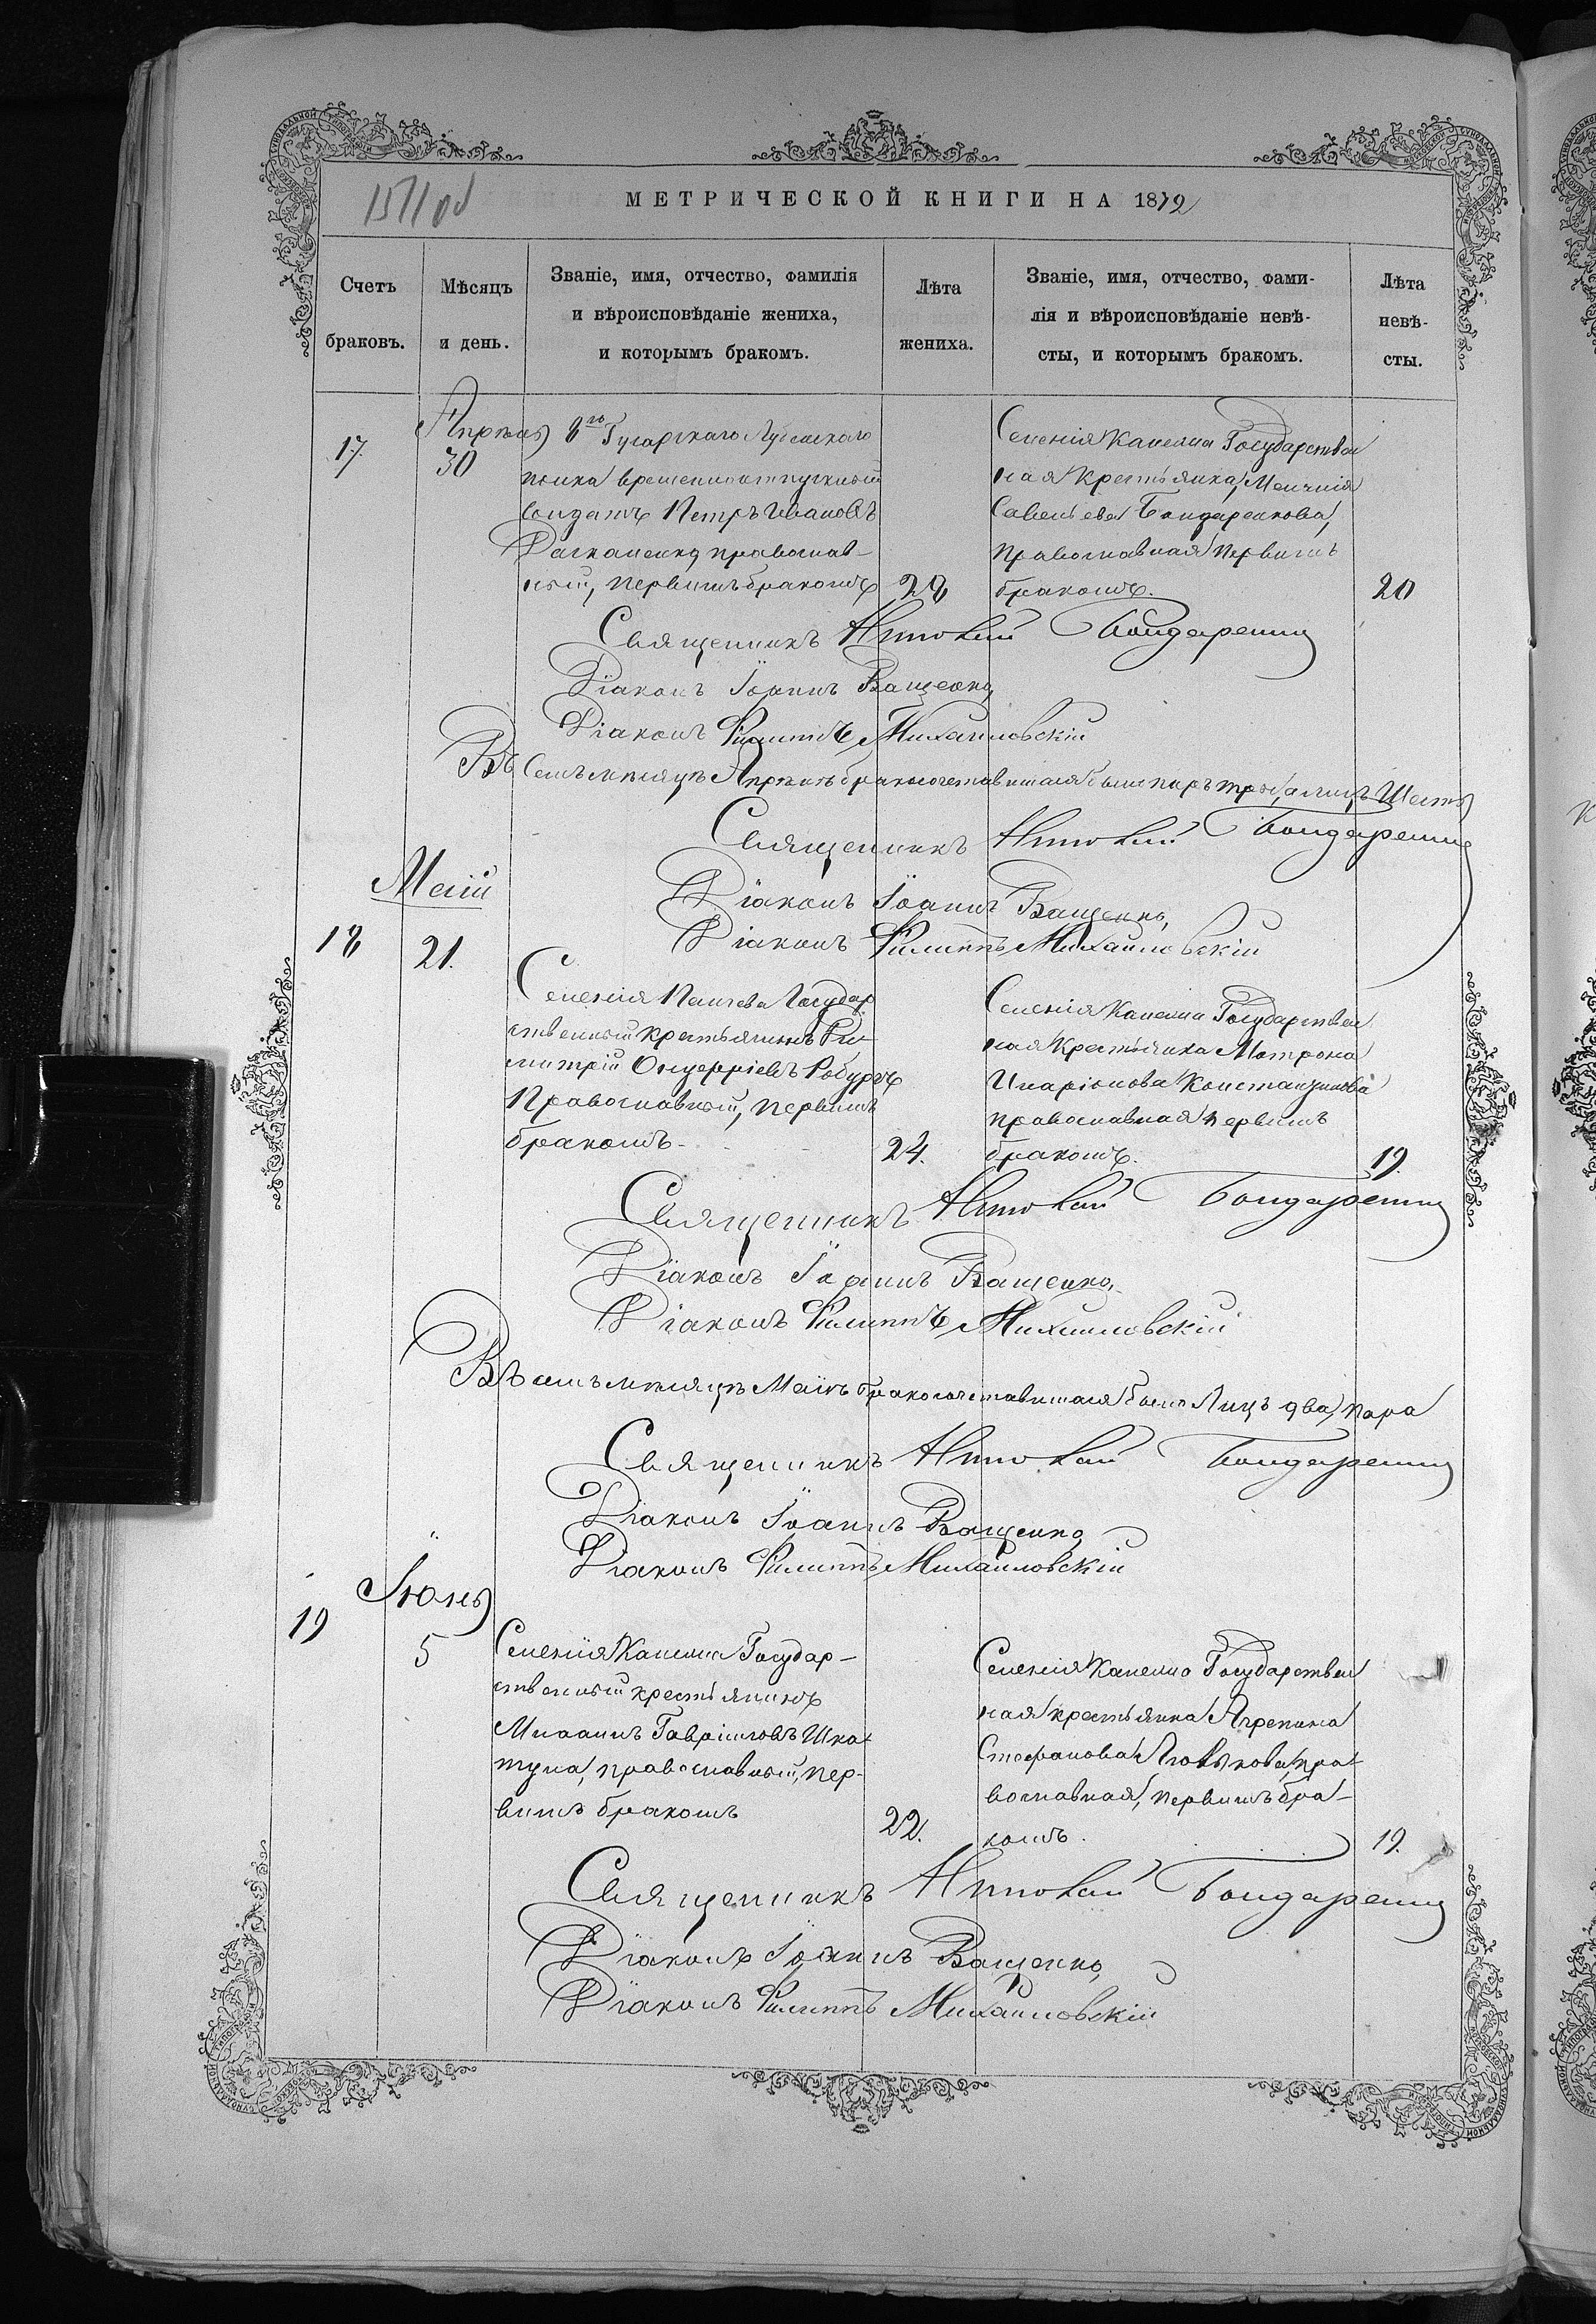 МЕТРИЧЕСКОЙ КНИГИ НА 1872
Счетъ браковъ.
Мѣсяцъ и день.
Званіе, имя, отчество, фамилія
и вѣроисповѣданіе жениха,
и которымъ бракомъ.
Лѣта жениха.
Званіе, имя, отчество, фами-
лія и вѣроисповѣданіе невѣ-
сты, и которымъ бракомъ.
Лѣта невѣ-
сты.
17.
Апрѣль
30
Гусарскаго
полка временноотпускной
Солдатъ Петръ Ивановъ
православ-
ный, первымъ бракомъ
28
Селенія Капемша Государствен
ная Крестьянка,
Савельева Бондаренкова,
Православная первымъ
бракомъ.
20
Священникъ Бондаренко
Діаконъ Іоаннъ Ващенко,
Діаконъ Филиппъ Михайловскій
Въ семъ мѣсяцѣ Апрѣлѣ бракосочетавшихся было паръ три, а лицъ Шесть
Священникъ Бондаренко
Діаконъ Іоаннъ Ващенко,
Діаконъ Филиппъ Михайловскій
Маій
18
21.
Селенія Государ
ственный крестьянинъ Ди
митрій Онуфріевъ
Православный, первымъ
бракомъ.
24.
Селенія Государствен
ная Крестьянка Матрона
Иларіонова Константинова
православная первымъ
бракомъ.
19.
Священникъ Бондаренко
Діаконъ Іоаннъ Ващенко,
Діаконъ Филиппъ Михайловскій
Въ семъ мѣсяцѣ Маіѣ бракосочетавшихся было Лицъ два, пара
Священникъ Бондаренко
Діаконъ Іоаннъ Ващенко,
Діаконъ Филиппъ Михайловскій
Іюнь
19
5
Селенія Государ-
ственный крестьянинъ
Гавріиловъ Шка-
тула, православный, пер-
вымъ бракомъ
22.
Селенія Государствен
ная крестьянка Агрепина
Стефанова пра-
вославная, первымъ бра-
комъ.
19.
Священникъ Бондаренко
Діаконъ Іоаннъ Ващенко,
Діаконъ Филиппъ Михайловскій